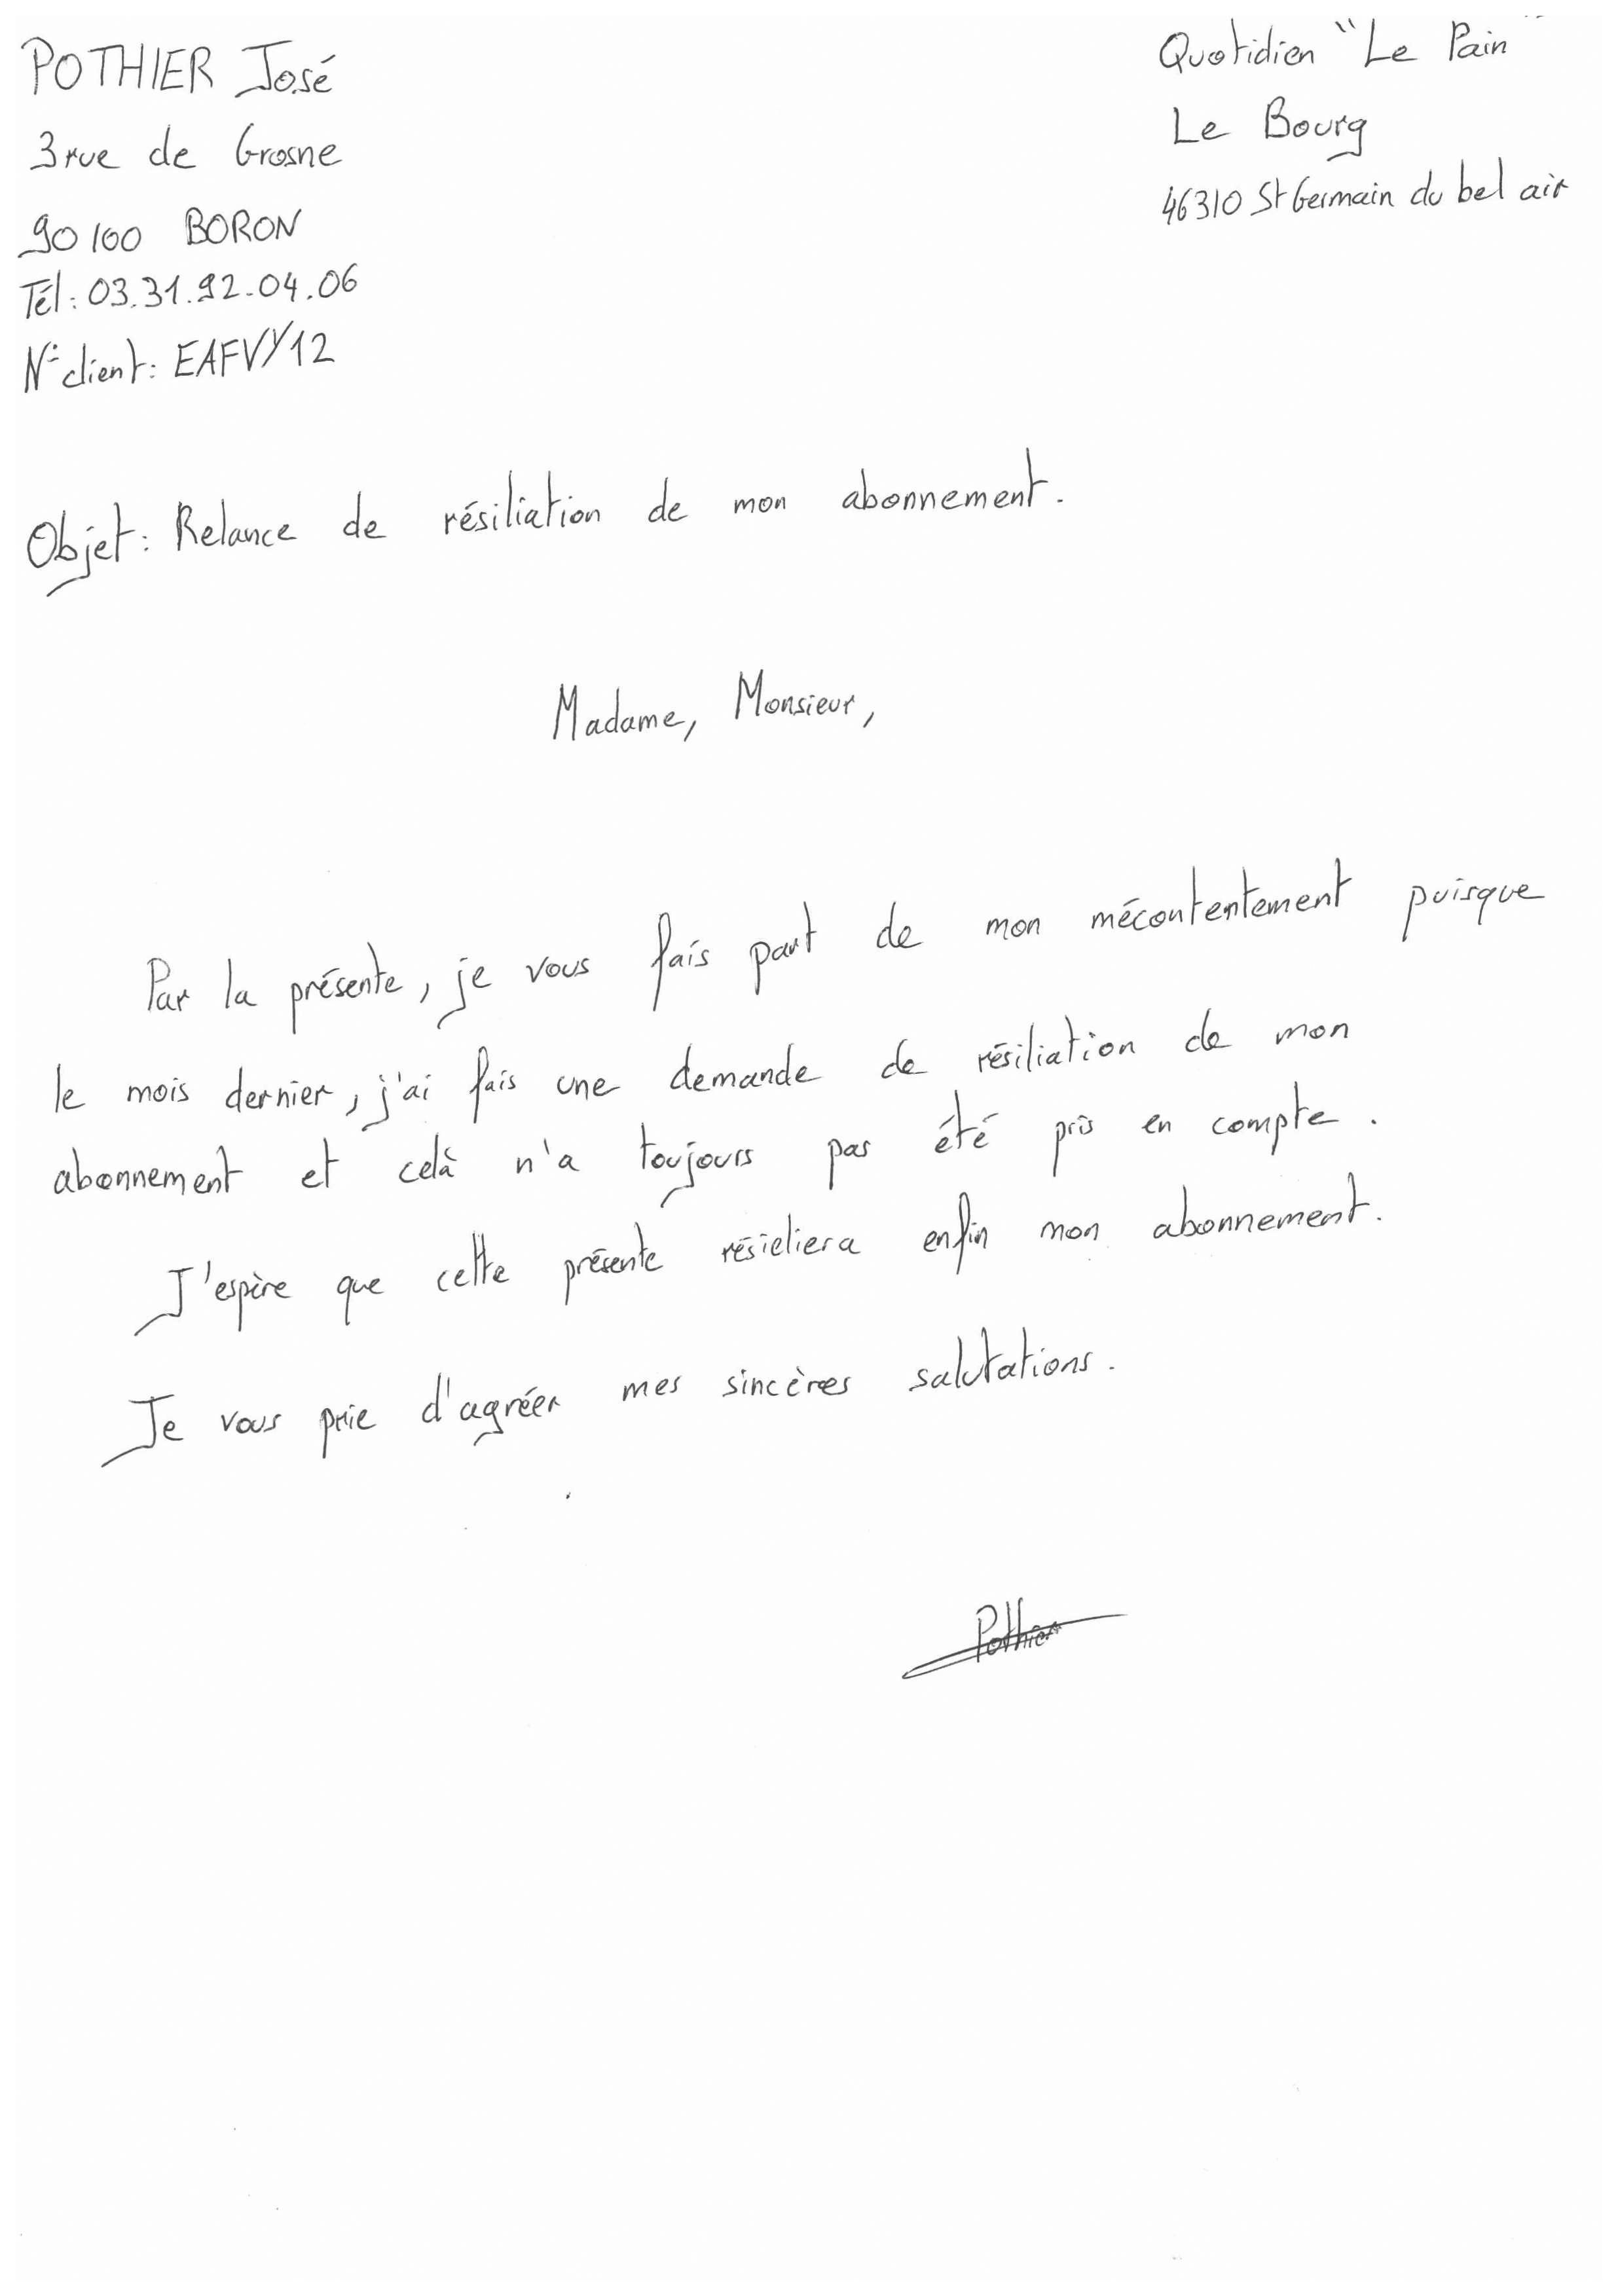 POTHIER José
3 rue de Grosne
90100 BORON
Tél : 03.31.92.04.06
N° client : EAFVY12
Quotidien "Le Pain"
Le Bourg
46310 St Germain du bel air
Objet : Relance de résiliation de mon abonnement.
Madame, Monsieur,
Par la présente, je vous fais part de mon mécontentement puisque
le mois dernier, j'ai fais une demande de résiliation de mon
abonnement et celà n'a toujours pas été pris en compte.
J'espère que cette présente résieliera enfin mon abonnement.
Je vous prie d'agréer mes sincères salutations.
Pothier